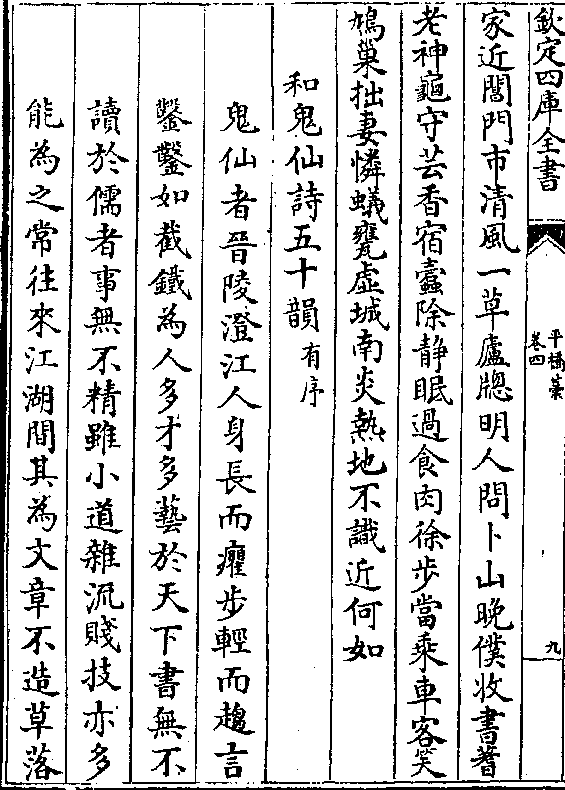 欽定四庫全書
平橋藁
卷四
九
家近閶門市清風一草廬牕明人問卜山晚僕收書蓍
老神龜守芸香宿蠧除静眠過食肉徐步當乘車客笑
鳩巢拙妻憐蟻甕虚城南炎熱地不識近何如
和鬼仙詩五十韻有序
鬼仙者晉陵澄江人身長而癯步輕而趨言
鑿鑿如截鐵為人多才多藝於天下書無不
讀於儒者事無不精雖小道雜流賤技亦多
能為之常往來江湖間其為文章不造草落